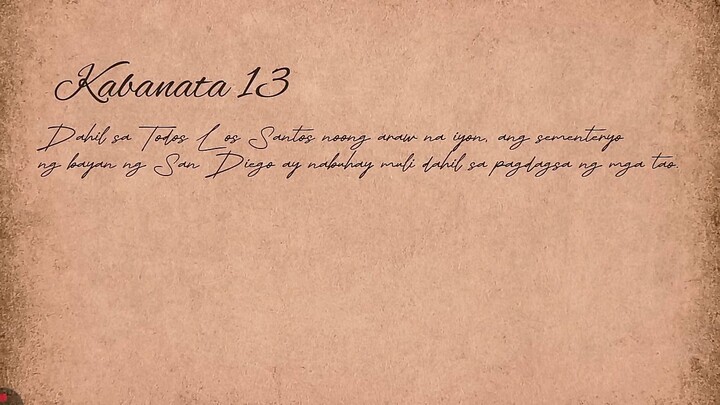 Kabanata 13
Dahil sa Todos Los Santos noong araw na iyon, ang sementeryo
ng bayan ng San Diego ay nabuhay muli dahil sa pagdagsa ng mga tao.